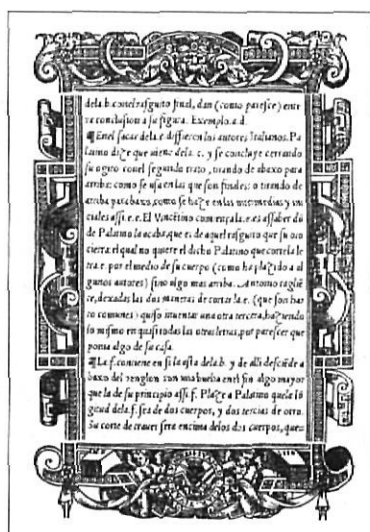 dela b. conel rasguito final, dan (como paresce) ente
ra conclusion a su figura. Exemplo. a. d.
¶ En el sacar dela .e. diffieren los autores Italianos. Pa
latino dize que viene dela .c. y se concluye cerrando
su ogito conel segundo trato, tirando de abaxo para
arriba: como se usa en las que son finales: o tirando de
arriba para baxo, como se haze en las intermedias y
ciales assi e. e. El Vincentino comença la .e. es assaber dō
de Palatino la acaba, que es de aquel rasguito que su ojo
cierra: el qual no quiere el dicho Palatino que corte la le
tra e. por el medio de su cuerpo (como ha plazido a al
gunos autores) sino algo mas arriba. Antonio taglie
te, dexadas las dos maneras de cortar la .e. (que son har
to comunes) quiso inventar una otra tercera, haziendo
lo mismo en quasi todas las otras letras, por parescer que
ponia algo de su casa.
¶ La .f. conviene en si la asta dela .b. y de alli desciēde a
baxo del renglon con una buelta enel fin algo mayor
que la de su principio assi f. Plaze a Palatino que la lō
gitud dela .f. sea de dos cuerpos, y dos tercias de otro.
Su corte de traves sera encima delos dos cuerpos, que